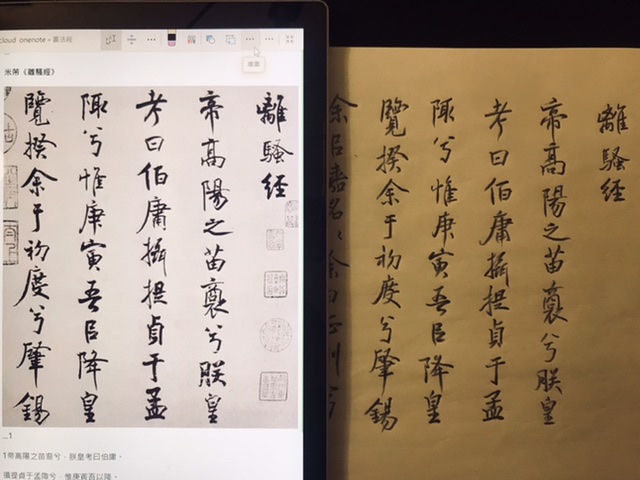 cloud onenote
米芾《離騷經》
離騷經
帝高陽之苗裔兮朕皇
考曰伯庸攝提貞于孟
陬兮惟庚寅吾㠯降皇
覽揆余于初度兮肇錫
1帝高陽之苗裔兮，朕皇考曰伯庸。
攝提貞于孟陬兮，惟庚寅吾以降。
離騷經
帝高陽之苗裔兮朕皇
考曰伯庸攝提貞于孟
陬兮惟庚寅吾㠯降皇
覽揆余于初度兮肇錫
余㠯嘉名